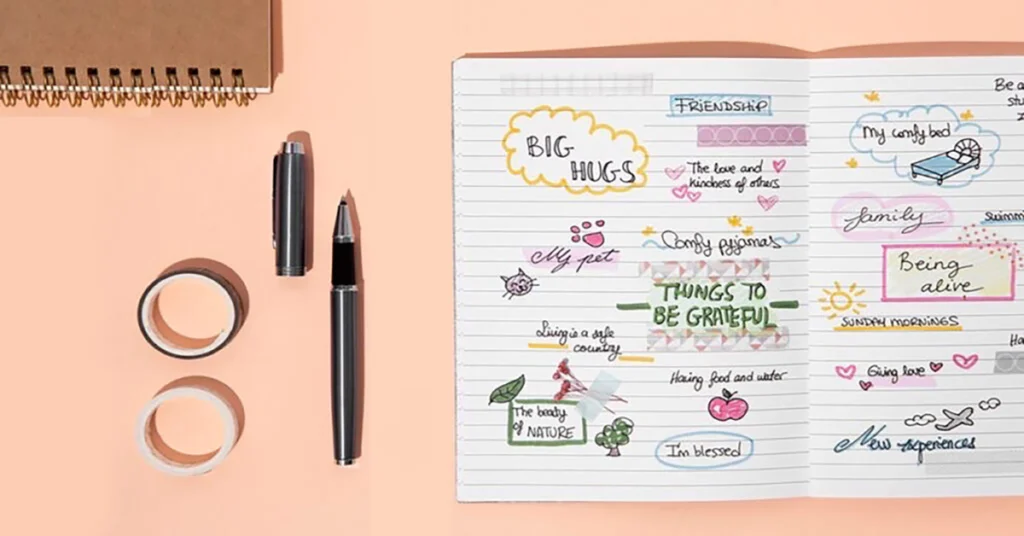 FRIENDSHIP
BIG
HUGS
The love and
kindness of others
My pet
Comfy pyjamas
THINGS TO
BE GRATEFUL
Living is a safe
country
Having food and water
The beauty
of NATURE
I'm blessed
Be a
My comfy bed
family
Being
alive
SUNDAY MORNINGS
Giving love
New experiences